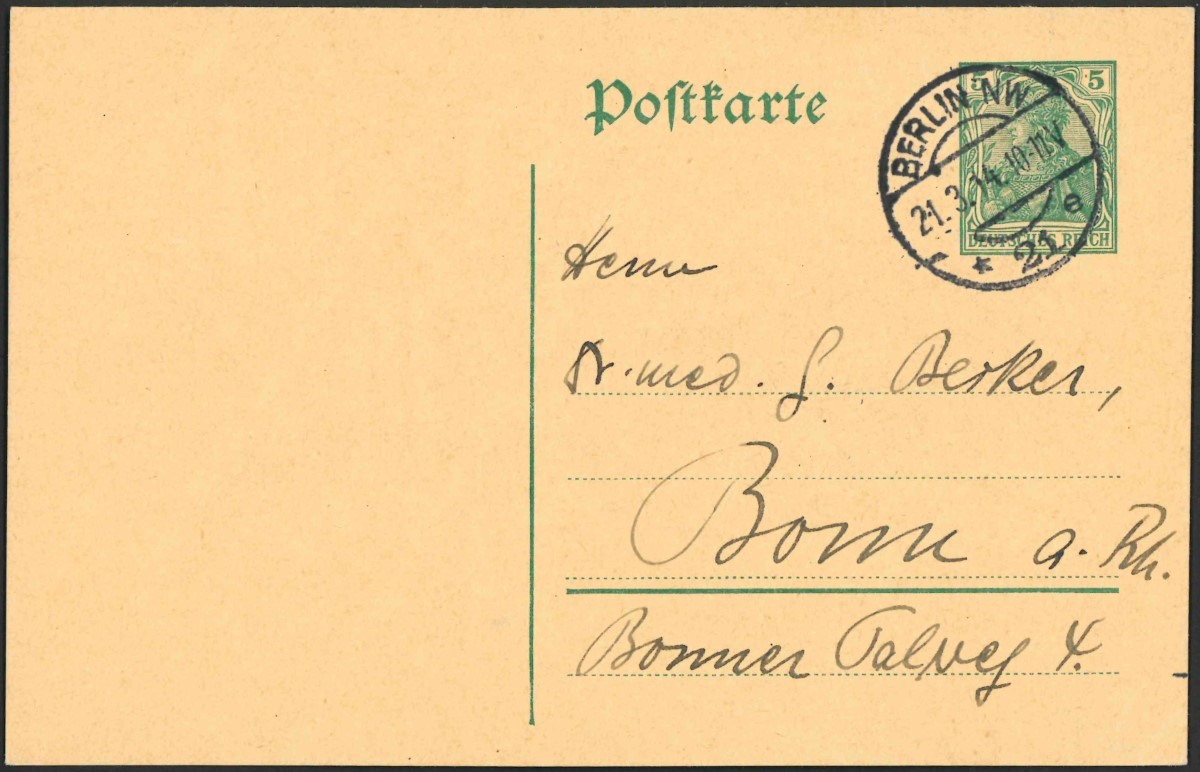 Postkarte
5 5
DEUTSCHES REICH
BERLIN NW
21.3.14.10-11V
* 21 e
Herrn
Dr. med. G. Becker,
Bonn a. Rh.
Bonner Talweg 4.